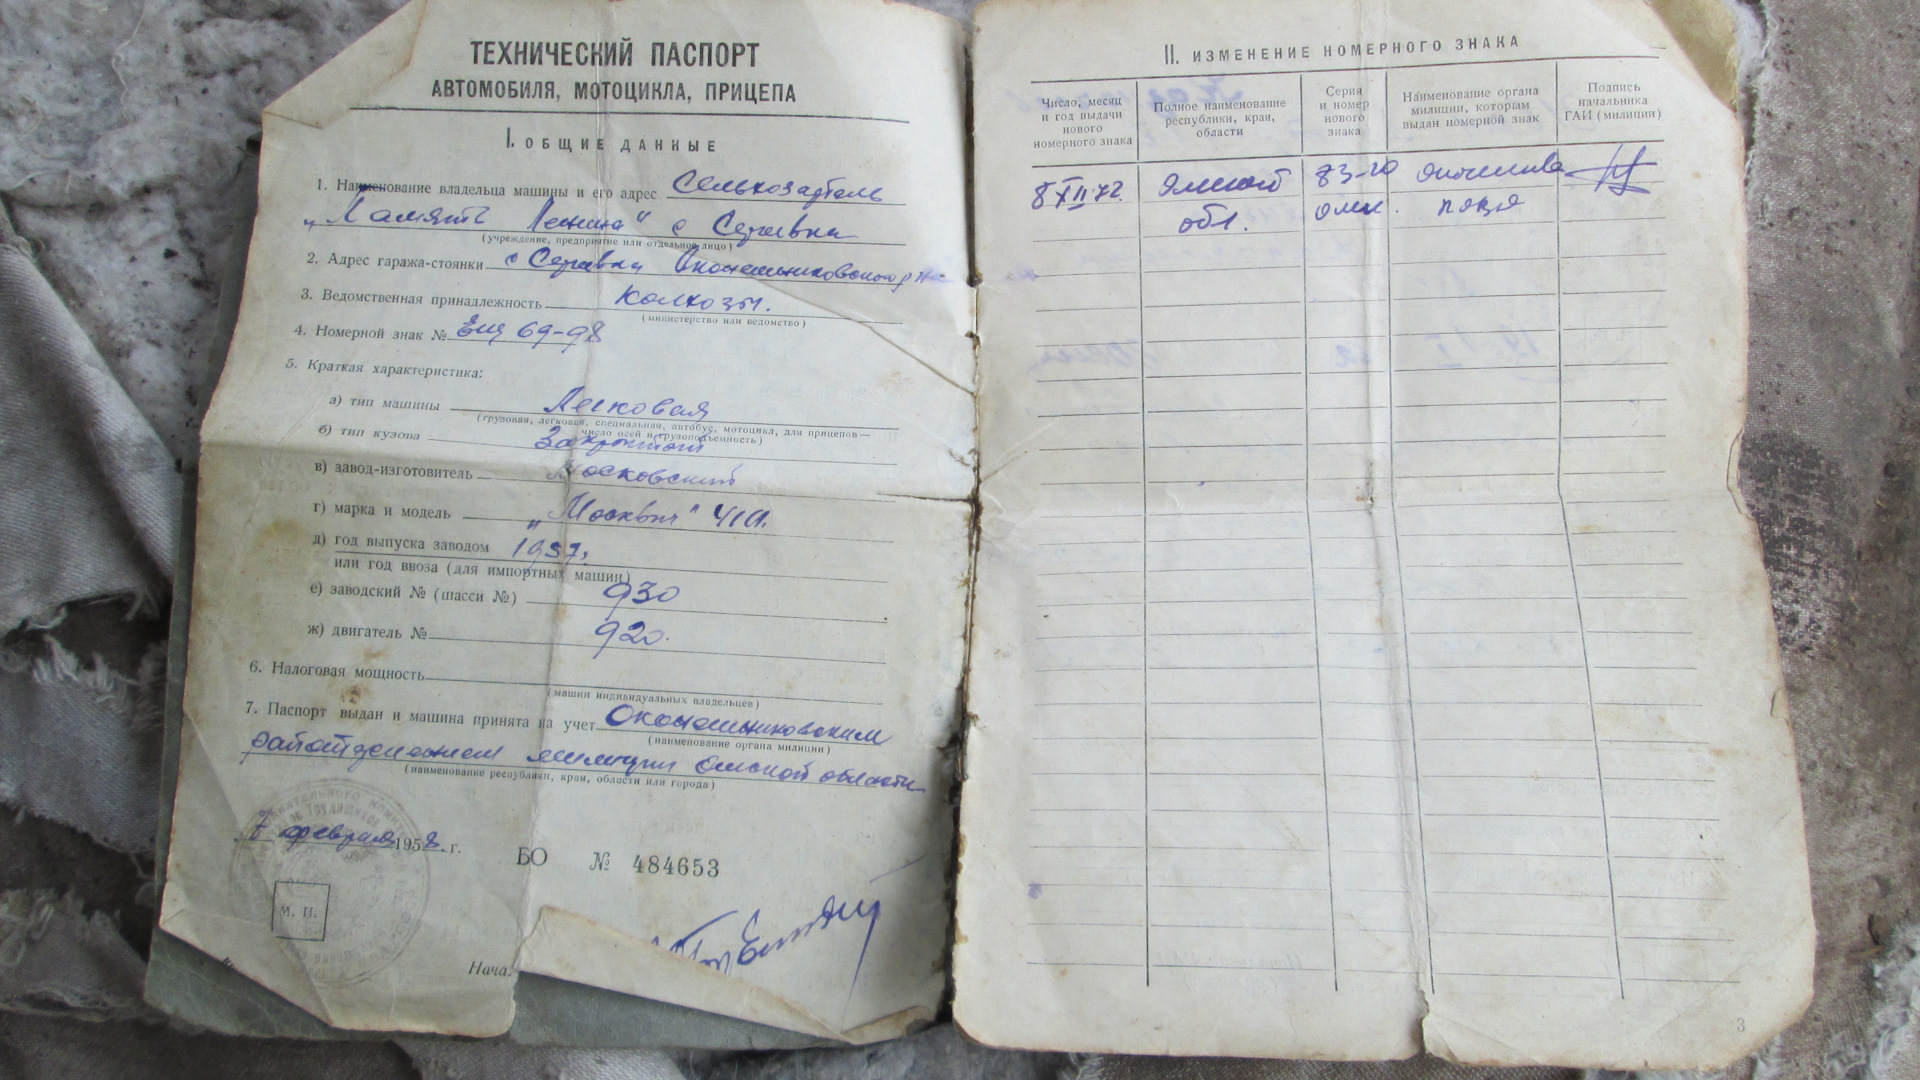 ТЕХНИЧЕСКИЙ ПАСПОРТ
АВТОМОБИЛЯ, МОТОЦИКЛА, ПРИЦЕПА
I. ОБЩИЕ ДАННЫЕ
1. Наименование владельца машины и его адрес Сельхозартель
„Память Ленина" с Сергеевка
(учреждение, предприятие или отдельное лицо)
2. Адрес гаража-стоянки с Сергеевка Оконешниковского р
3. Ведомственная принадлежность колхозы.
(министерство или ведомство)
4. Номерной знак № 69-98
5. Краткая характеристика:
а) тип машины Легковая
(грузовая, легковая, специальная, автобус, мотоцикл, для прицепов—
число осей и грузоподъемность)
б) тип кузова Закрытый
в) завод-изготовитель Московский
г) марка и модель „Москвич"
д) год выпуска заводом 1957.
или год ввоза (для импортных машин)
е) заводский № (шасси №) 930
ж) двигатель № 920.
6. Налоговая мощность
(машин индивидуальных владельцев)
7. Паспорт выдан и машина принята на учет Оконешниковским
(наименование органа милиции)
райотделением милиции Омской области
(наименование республики, края, области или города)
7 февраля 1958. г.
БО № 484653
М. П.
Нача
II. ИЗМЕНЕНИЕ НОМЕРНОГО ЗНАКА
Число, месяц и год выдачи нового номерного знака
Полное наименование республики, края, области
Серия и номер нового знака
Наименование органа милиции, которым выдан номерной знак
Подпись начальника ГАИ (милиции)
8 XII-72. Омской
обл.
3